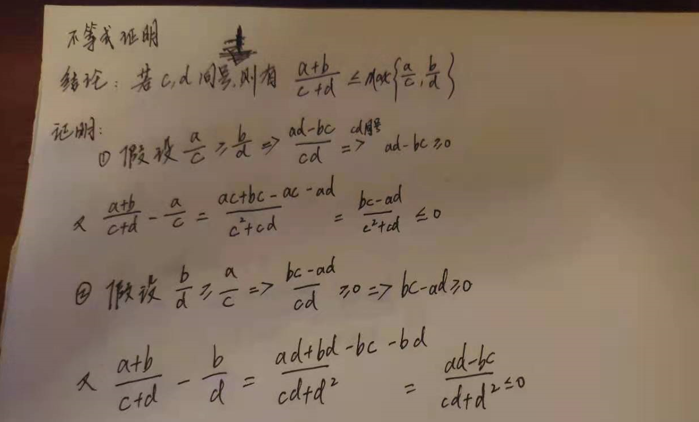 不等式证明
结论：若c,d同号,则有 \frac{a+b}{c+d} ≤ max{\frac{a}{c},\frac{b}{d}}
证明：
① 假设 \frac{a}{c} ≥ \frac{b}{d} => \frac{ad-bc}{cd} \overset{cd同号}{=>} ad-bc≥0
又 \frac{a+b}{c+d} - \frac{a}{c} = \frac{ac+bc-ac-ad}{c^2+cd} = \frac{bc-ad}{c^2+cd} ≤0
② 假设 \frac{b}{d} ≥ \frac{a}{c} => \frac{bc-ad}{cd} ≥0 => bc-ad≥0
又 \frac{a+b}{c+d} - \frac{b}{d} = \frac{ad+bd-bc-bd}{cd+d^2} = \frac{ad-bc}{cd+d^2} ≤0